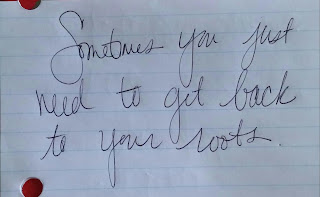 Sometimes you just
need to get back
to your roots.